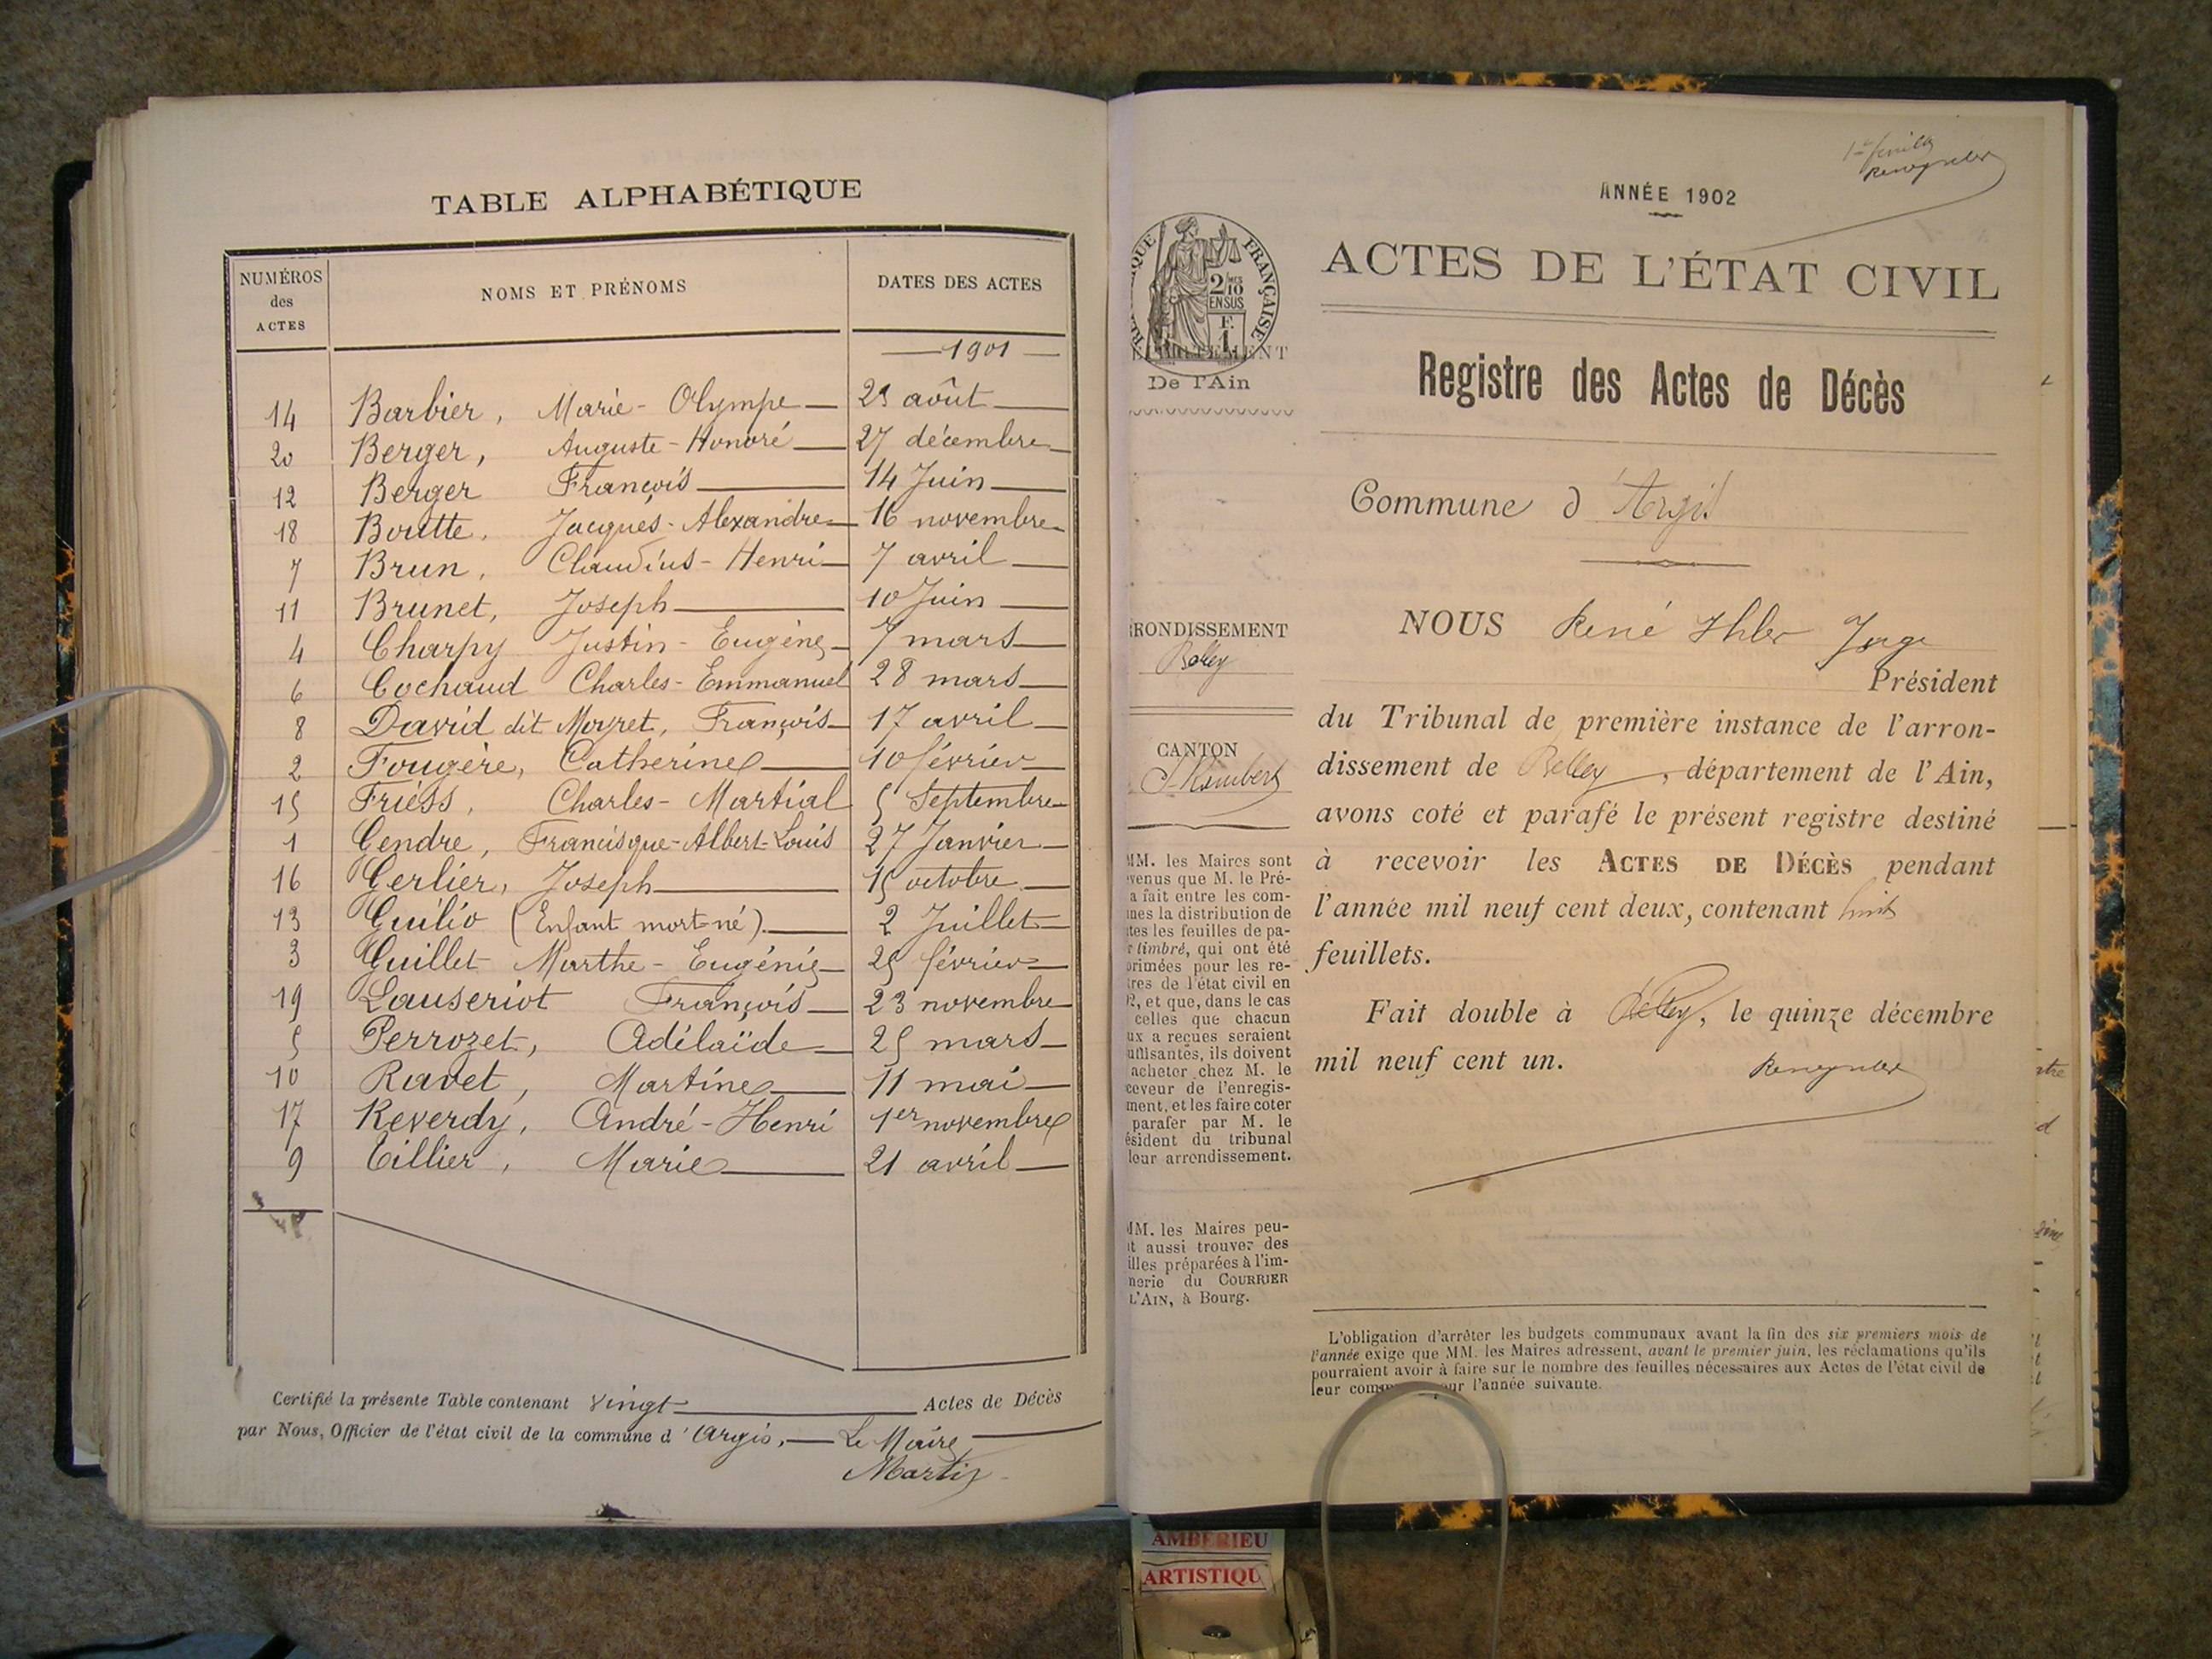 TABLE ALPHABÉTIQUE
NUMÉROS des ACTES
NOMS ET PRÉNOMS
DATES DES ACTES
1901
14 Barbier, Marie-Olympe 23 août
20 Berger, Auguste-Honoré 27 décembre
12 Berger François 14 Juin
18 Boutte, Jacques-Alexandre 16 novembre
7 Brun, Claudius-Henri 7 avril
11 Brunet, Joseph 10 Juin
4 Charpy Justin-Eugène 7 mars
6 Cochaud Charles-Emmanuel 28 mars
8 David dit Moyret, François 17 avril
2 Fougère, Catherine 10 février
15 Friess, Charles-Martial 5 Septembre
1 Gendre, Francisque-Albert-Louis 27 Janvier
16 Gerlier, Joseph 15 octobre
13 Guilio (Enfant mort-né) 2 Juillet
3 Guillet Marthe-Eugénie 25 février
19 Lauseriot François 23 novembre
5 Perrozet, Adélaïde 25 mars
10 Ravet, Martine 11 mai
17 Reverdy, André-Henri 1er novembre
9 Tillier, Marie 21 avril
Certifié la présente Table contenant vingt Actes de Décès
par Nous, Officier de l'état civil de la commune d'Argis, Le Maire
Martin
1er feuillet
ANNÉE 1902
FRANÇAISE
2/10 EN SUS
F. 1
De l'Ain
ACTES DE L'ÉTAT CIVIL
Registre des Actes de Décès
Commune d'Argis
RRONDISSEMENT
Belley
CANTON
St Rambert
MM. les Maires sont
venus que M. le Pré-
a fait entre les com-
nes la distribution de
tes les feuilles de pa-
r timbré, qui ont été
primées pour les re-
tres de l'état civil en
2, et que, dans le cas
celles que chacun
ux a reçues seraient
uffisantes, ils doivent
acheter chez M. le
ceveur de l'enregis-
ment, et les faire coter
parafer par M. le
ésident du tribunal
leur arrondissement.
MM. les Maires peu-
t aussi trouver des
illes préparées à l'im-
nerie du COURRIER
L'AIN, à Bourg.
NOUS René Ihler Juge
Président
du Tribunal de première instance de l'arron-
dissement de Belley, département de l'Ain,
avons coté et parafé le présent registre destiné
à recevoir les ACTES DE DÉCÈS pendant
l'année mil neuf cent deux, contenant huit
feuillets.
Fait double à Belley, le quinze décembre
mil neuf cent un.
L'obligation d'arrêter les budgets communaux avant la fin des six premiers mois de
l'année exige que MM. les Maires adressent, avant le premier juin, les réclamations qu'ils
pourraient avoir à faire sur le nombre des feuilles nécessaires aux Actes de l'état civil de
leur l'année suivante.
AMBERIEU
ARTISTIQU